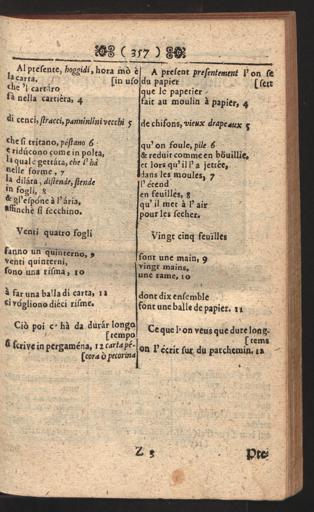 ( 357 )
Al presente, hoggidì, hora mò è
[in uso
la carta,
che 'l cartáro
fà nella cartiera, 4
di cenci, stracci, pannilini vecchi 5
che sì tritano, péstano 6
e ridúcono come in polta,
la qual è gettáta, che l'hà
nelle forme, 7
la diláta, disténde, stende
in fogli, 8
& gl'espóne à l'ária,
affinche si secchino.
Venti quatro fogli
fanno un quinterno, 9
venti quinterni,
sono una risma, 10
à far una balla di carta, 11
ci vógliono diéci risme.
Ciò poi c' hà da durár longo
[tempo
si scrive in pergaména, 12 carta pé-
[cora ò pecorina
A present presentement l'on se
[sert
du papier
que le papetier
fait au moulin à papier, 4
de chifons, vieux drapeaux 5
qu'on foule, pile 6
& reduit comme en bouillie,
et lors qu'il l'a jettée,
dans les moules, 7
l'étend
en feuilles, 8
qu'il met à l'air
pour les secher.
Vingt cinq feuilles
font une main, 9
vingt mains,
une rame, 10
dont dix ensemble
font une balle de papier. 11
Ce que l'on veus que dure long-
[tems
on l'écrit sur du parchemin. 12
Z 3
Pre-